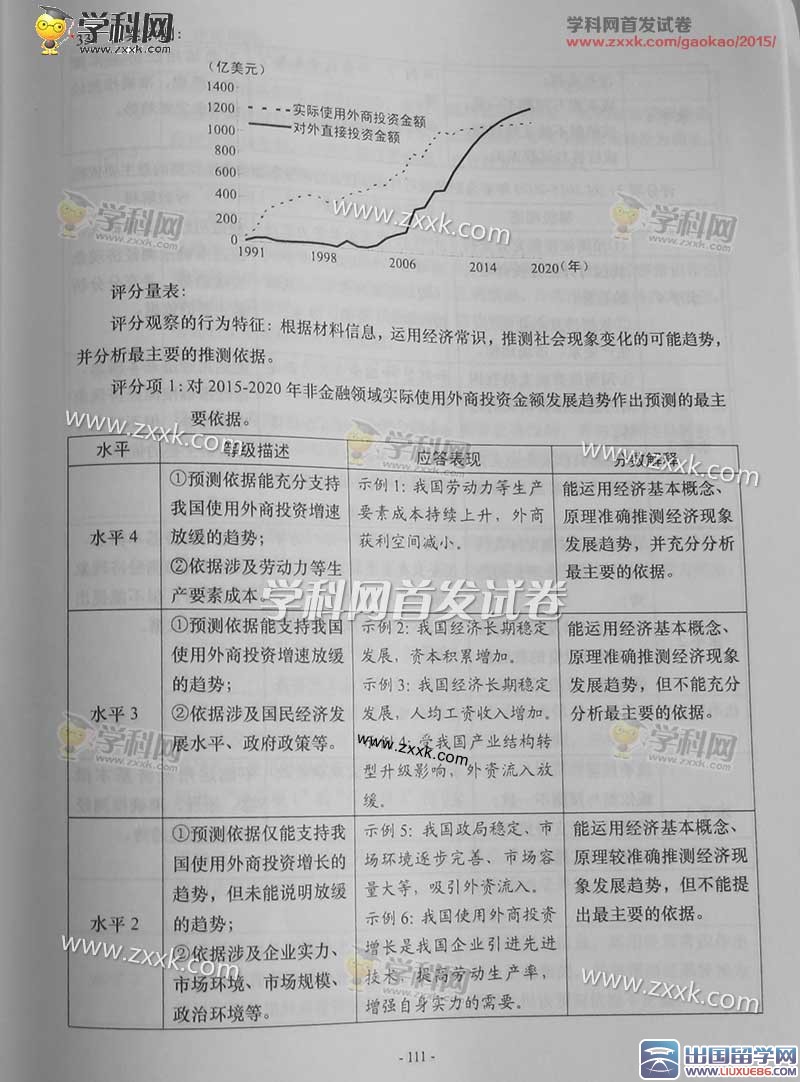 学科网
www.zxxk.com
学科网首发试卷
www.zxxk.com/gaokao/2015/
(亿美元)
1400
1200
1000
800
600
400
200
0
实际使用外商投资金额
对外直接投资金额
1991
1998
2006
2014
2020(年)
学科网
www.zxxk.com
学科网
评分量表：
评分观察的行为特征：根据材料信息，运用经济常识，推测社会现象变化的可能趋势，
并分析最主要的推测依据。
评分项 1：对 2015-2020 年非金融领域实际使用外商投资金额发展趋势作出预测的最主
要依据。
www.zxxk.com
学科网
www.zxxk.com
水平
等级描述
应答表现
分数解释
水平 4
①预测依据能充分支持
我国使用外商投资增速
放缓的趋势；
②依据涉及劳动力等生
产要素成本。
示例 1：我国劳动力等生产
要素成本持续上升，外商
获利空间减小。
能运用经济基本概念、
原理准确推测经济现象
发展趋势，并充分分析
最主要的依据。
学科网首发试卷
水平 3
①预测依据能支持我国
使用外商投资增速放缓
的趋势；
②依据涉及国民经济发
展水平、政府政策等。
示例 2：我国经济长期稳定
发展，资本积累增加。
示例 3：我国经济长期稳定
发展，人均工资收入增加。
示例 4：受我国产业结构转
型升级影响，外资流入放
缓。
能运用经济基本概念、
原理准确推测经济现象
发展趋势，但不能充分
分析最主要的依据。
学科网
www.zxxk.com
学科网
水平 2
①预测依据仅能支持我
国使用外商投资增长的
趋势，但未能说明放缓
的趋势；
②依据涉及企业实力、
市场环境、市场规模、
政治环境等。
示例 5：我国政局稳定、市
场环境逐步完善、市场容
量大等，吸引外资流入。
示例 6：我国使用外商投资
增长是我国企业引进先进
技术，提高劳动生产率，
增强自身实力的需要。
能运用经济基本概念、
原理较准确推测经济现
象发展趋势，但不能提
出最主要的依据。
www.zxxk.com
学科网
www.zxxk.com
- 111 -
出国留学网
www.liuxue86.com